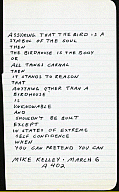 ASSURING THAT THE BIRD IS A
SYMBOL OF THE SOUL
THEN
THE BIRDHOUSE IS THE BODY
OR
ALL THINGS CARNAL
THEN
IT STANDS TO REASON
THAT
ANYTHING OTHER THAN A
BIRDHOUSE
IS
UNKNOWABLE
AND
SHOULDN'T BE BUILT
EXCEPT
IN STATES OF EXTREME
SELF CONFIDENCE
WHEN
YOU CAN PRETEND YOU CAN
MIKE KELLEY · MARCH 6
A 402